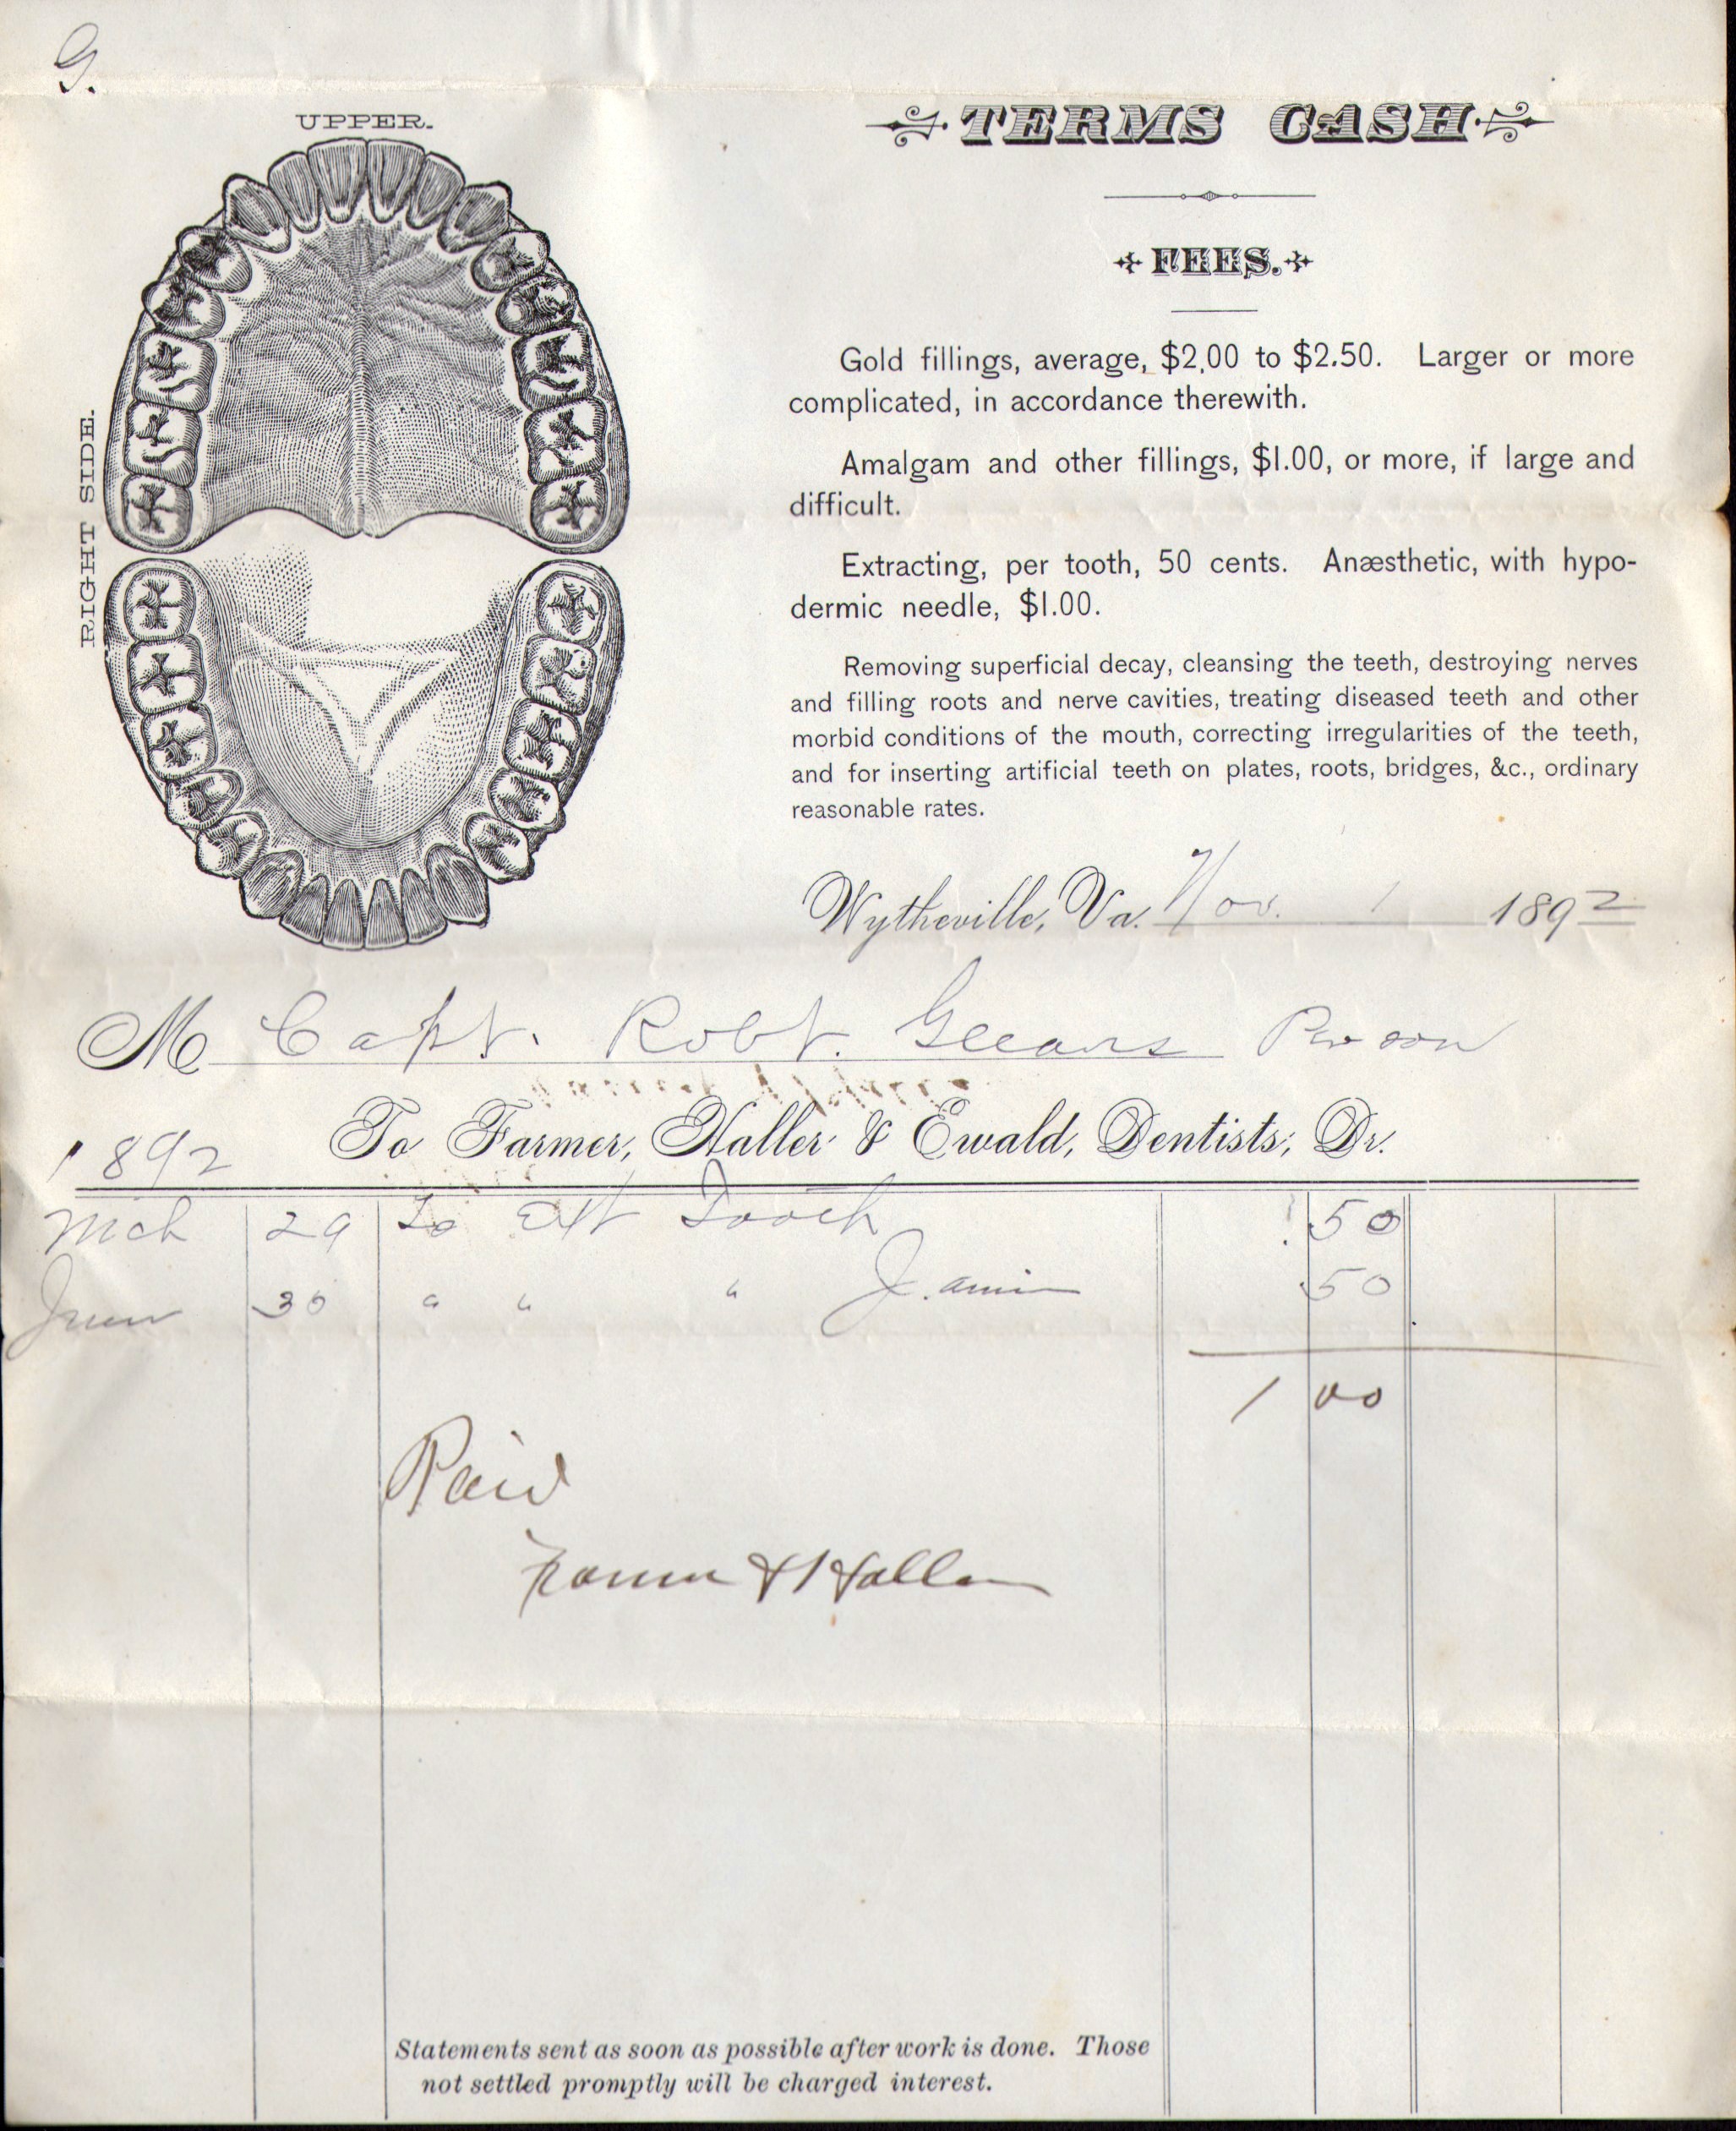 G.
UPPER.
RIGHT SIDE.
TERMS CASH
FEES.
Gold fillings, average, $2.00 to $2.50. Larger or more
complicated, in accordance therewith.
Amalgam and other fillings, $1.00, or more, if large and
difficult.
Extracting, per tooth, 50 cents. Anæsthetic, with hypo-
dermic needle, $1.00.
Removing superficial decay, cleansing the teeth, destroying nerves
and filling roots and nerve cavities, treating diseased teeth and other
morbid conditions of the mouth, correcting irregularities of the teeth,
and for inserting artificial teeth on plates, roots, bridges, &c., ordinary
reasonable rates.
Wytheville, Va. Nov. 1 1892
M Capt. Robt.
To Farmer, Haller & Ewald, Dentists, Dr.
1892
Mch 29 To Ext Tooth 50
June 30 " " " 50
1 00
Paid
Farmer & Haller
Statements sent as soon as possible after work is done. Those
not settled promptly will be charged interest.